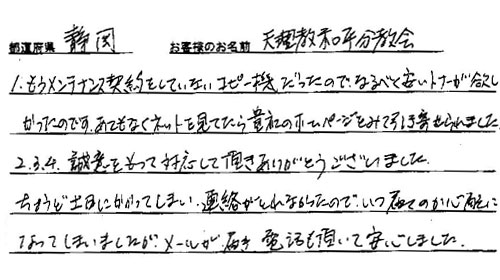 都道府県 静岡 お客様のお名前 天理教和平分教会
1.もうメンテナンス契約をしていないコピー機だったので、なるべく安いトナーが欲し
かったのです。あてもなくネットを見てたら貴社のホームページをみて引き寄せられました
2.3.4. 誠意をもって対応して頂きありがとうございました。
ちょうど土日にかかってしまい、連絡がとれなかったので、いつ届くのか心配に
なってしまいましたが、メールが届き電話も頂いて安心しました。